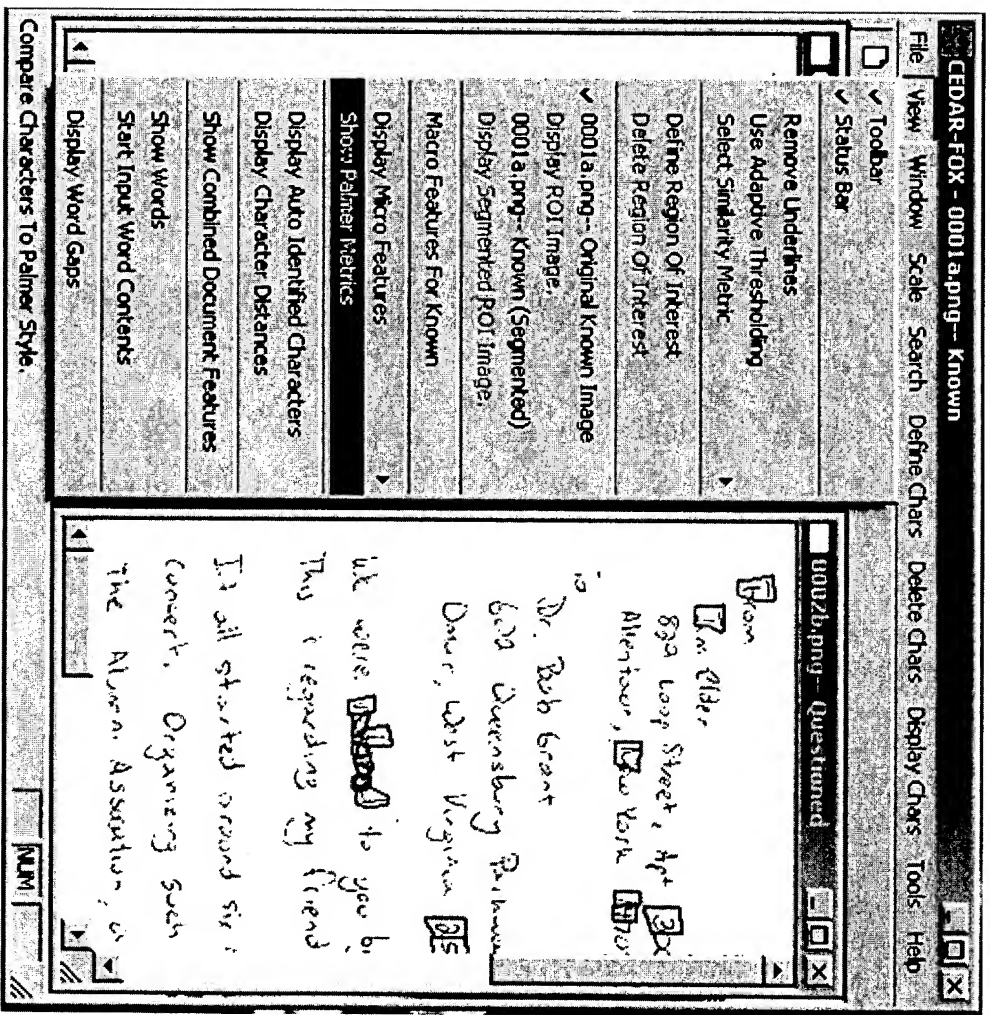 CEDAR-FOX - 0001a.png-- Known
File View Window Scale Search Define Chars Delete Chars Display Chars Tools Help
✔ Toolbar
✔ Status Bar
Remove Underlines
Use Adaptive Thresholding
Select Similarity Metric
Define Region Of Interest
Delete Region Of Interest
✔ 0001a.png-- Original Known Image
Display ROI Image,
0001a.png-- Known (Segmented)
Display Segmented ROI Image,
Macro Features For Known
Display Micro Features
Show Palmer Metrics
Display Auto Identified Characters
Display Character Distances
Show Combined Document Features
Show Words
Start Input Word Contents
Display Word Gaps
0002b.png-- Questioned
From
Jim Elder
829 Loop Street, Apt
Allentown, New York
To
Dr. Bob Grant
602 Queensburg
Omar, West Virginia 25
We were to you
This is regarding my friend
It all started around six
Concert. Organizing such
The Alumni Association,
Compare Characters To Palmer Style.
NUM